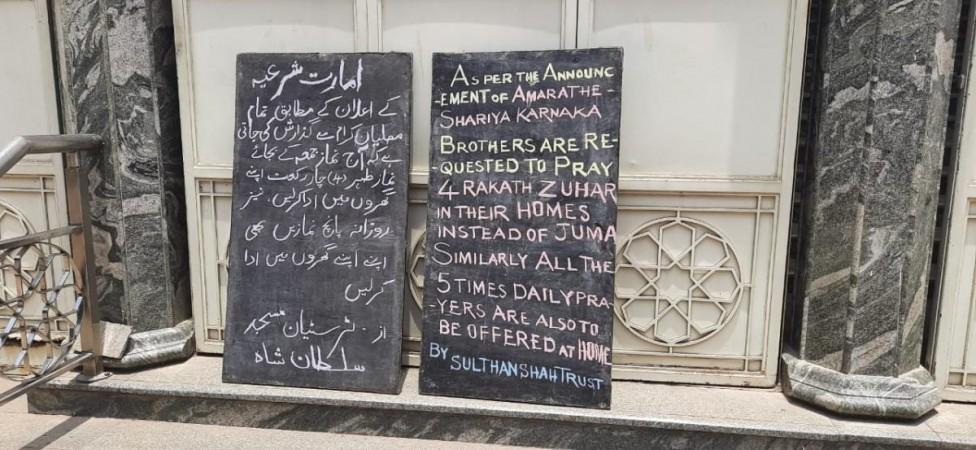 امارت شرعیہ
کے اعلان کے مطابق تمام
مصلیان کرام سے گذارش کی جاتی
ہے کہ آج نماز جمعہ کے بجائے
نماز ظہر (4) چار رکعت اپنے
گھروں میں ادا کرلیں، نیز
روزانہ پانچ نمازیں بھی
اپنے اپنے گھروں میں ادا
کرلیں
از: ٹرسٹیان مسجد
سلطان شاہ
AS PER THE ANNOUNC
-EMENT OF AMARATHE-
SHARIYA KARNAKA
BROTHERS ARE RE-
QUESTED TO PRAY
4 RAKATH ZUHAR
IN THEIR HOMES
INSTEAD OF JUMA
SIMILARLY ALL THE
5 TIMES DAILY PRA-
-YERS ARE ALSO TO
BE OFFERED AT HOME
BY SULTHAN SHAH TRUST